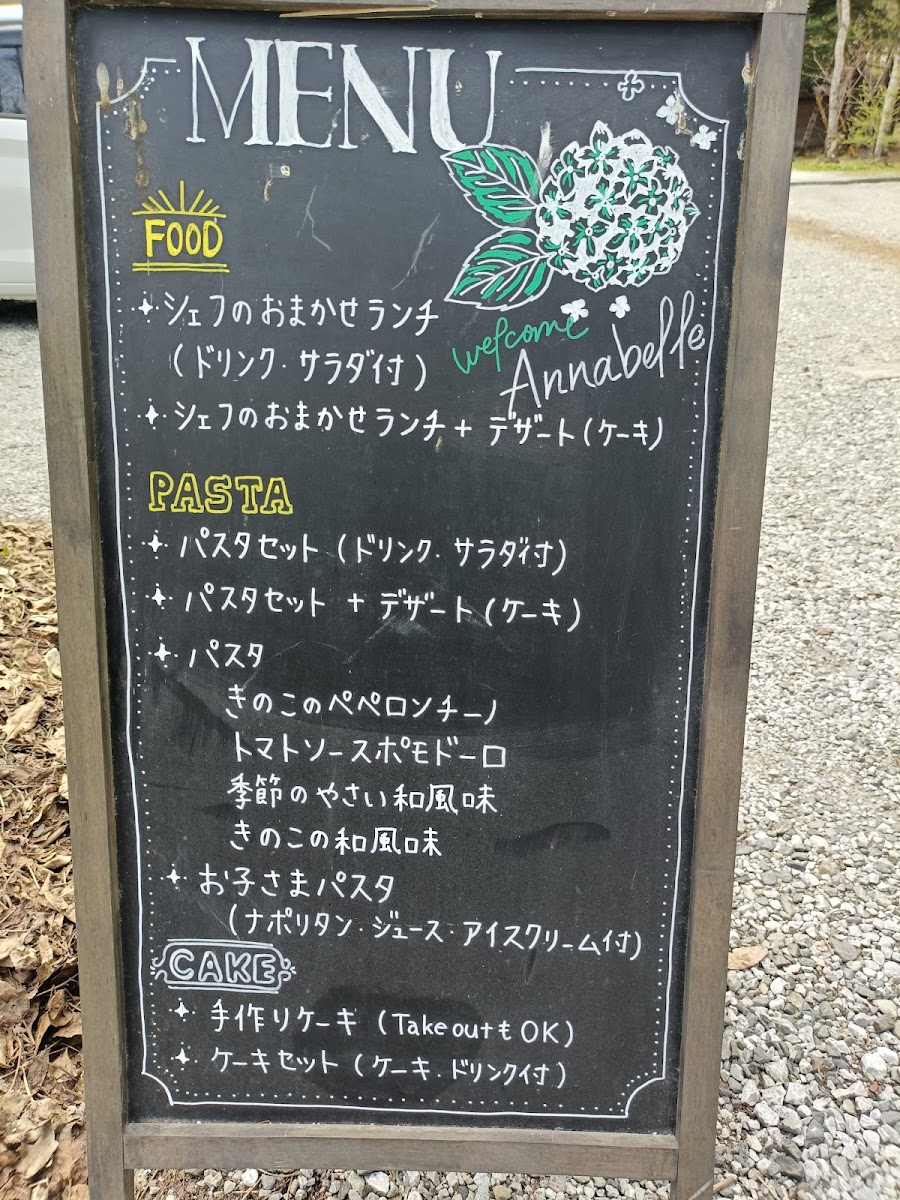 MENU
FOOD
シェフのおまかせランチ
(ドリンク・サラダ付)
welcome
Annabelle
シェフのおまかせランチ + デザート(ケーキ)
PASTA
パスタセット (ドリンク・サラダ付)
パスタセット + デザート(ケーキ)
パスタ
きのこのペペロンチーノ
トマトソースポモドーロ
季節のやさい和風味
きのこの和風味
お子さまパスタ
(ナポリタン・ジュース・アイスクリーム付)
CAKE
手作りケーキ (TakeoutもOK)
ケーキセット (ケーキ・ドリンク付)